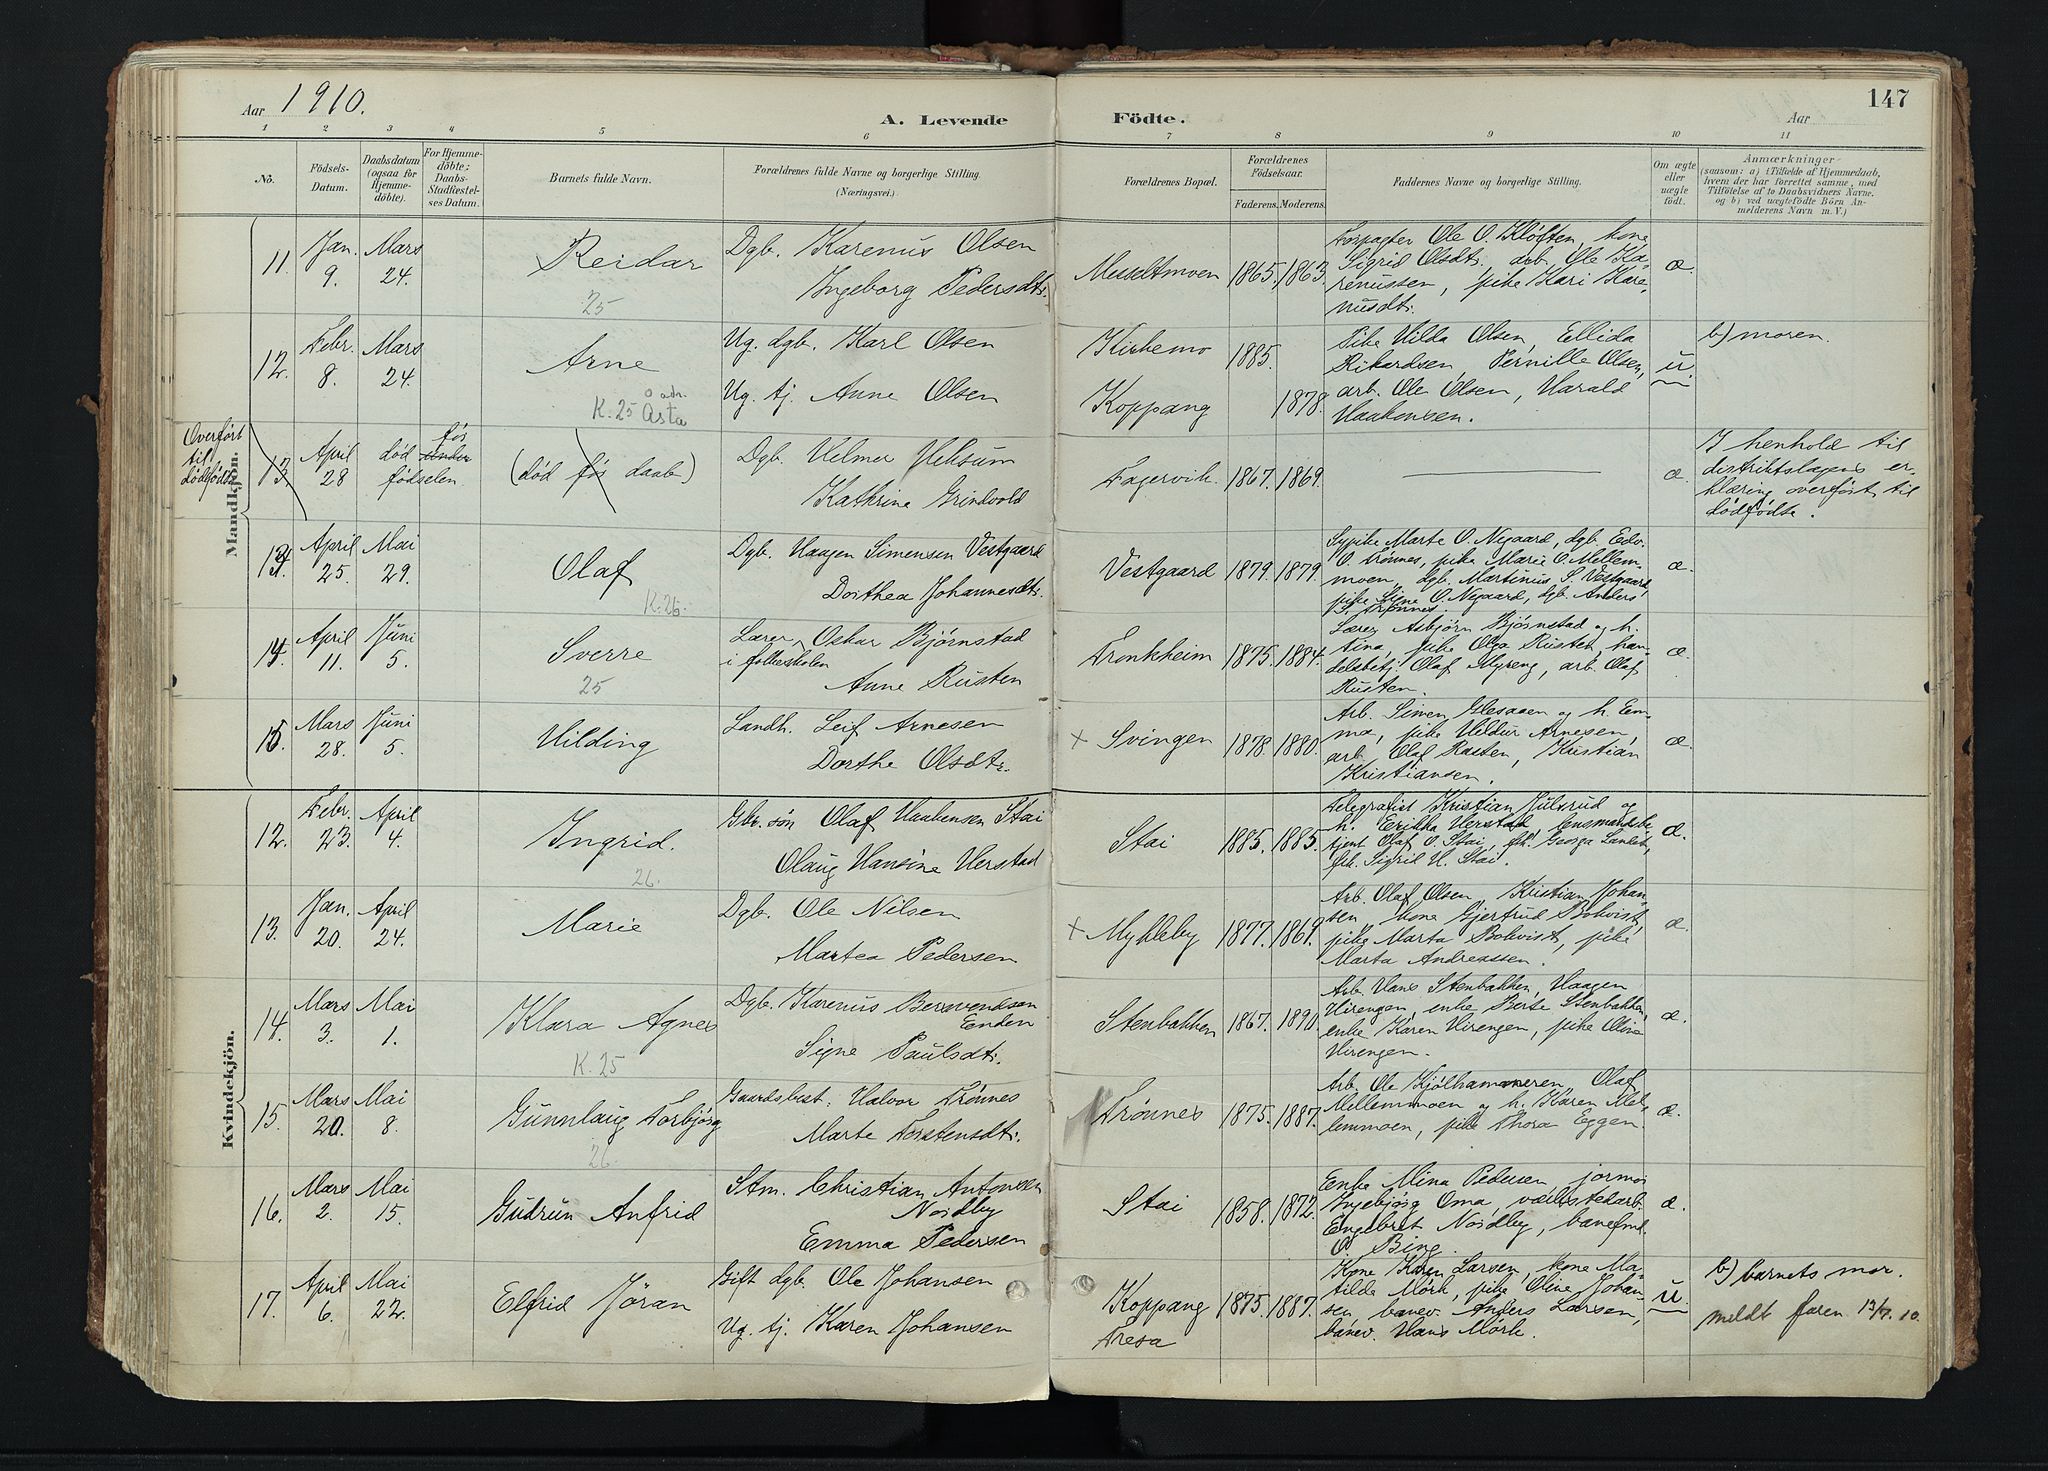 Aar 1910.
A. Levende Födte.
Aar
147
1 2 3 4 5 6 7 8 9 10 11
No.
Födsels-Datum.
Daabsdatum (ogsaa for Hjemme-döbte).
For Hjemme-döbte; Daabs-Stadfæstel-ses Datum.
Barnets fulde Navn.
Forældrenes fulde Navne og borgerlige Stilling.
(Næringsvei.)
Forældrenes Bopæl.
Forældrenes Födselsaar.
Faderens. Moderens.
Faddernes Navne og borgerlige Stilling.
Om ægte eller uægte födt.
Anmærkninger
(saasom: a) i Tilfælde af Hjemmedaab,
hvem der har forrettet samme, med
Tilföielse af to Daabsvidners Navne.
og b) ved uægtefödte Börn An-
melderens Navn m. V.)
Mandkjön.
11. Jan. 9. Mars 24. Reidar 25
Dgb. Karenus Olsen
Ingeborg Pedersdtr.
Messeltmoen 1865. 1863.
Forpagter Ole O. Kløften, kone
Sigrid Olsdtr. arb. Ole Ka-
renussen, pike Kari Kare-
nusdtr.
æ.
12. Febr. 8. Mars 24. Arne
K. 25 Asta
Ug. dgb. Karl Olsen
Ug. tj. Anne Olsen
Kirkemo 1885.
Koppang 1878.
Pike Hilda Olsen, Ellida
Rikardsen, Pernille Olsen,
arb. Ole Olsen, Harald
Haakensen.
u.
b) moren.
Overført til dødfødte
13. April 28 død før under fødselen (død før daab)
Dgb. Helmer Heksum
Kathrine Grindvold
Fagervik. 1867. 1869.
æ.
I henhold til
distriktslægens er-
klæring overført til
dødfødte.
13. April 25. Mai 29. Olaf K. 26.
Dgb. Haagen Simensen Vestgaard
Dorthea Johannesdtr.
Vestgaard 1879. 1879.
Sypike Marte O. Negaard, dgb. Edv.
O. Trønnes, pike Marie O. Mellem-
moen, dgb. Martinius S. Vestgaard,
pike Signe O. Negaard, dgb. Anders
Trønnes.
æ.
14. April 11. Juni 5. Sverre 25
Lærer Oskar Bjørnstad
i folkeskolen
Anne Rusten
Tronkheim 1875. 1884.
Lærer Asbjørn Bjørnstad og h.
tina, pike Olga Rusten, han-
delsbetj. Olaf Myreng, arb. Olaf
Rusten.
æ.
15. Mars 28. Juni 5. Hilding
Landh. Leif Arnesen
Dorthe Olsdtr.
× Svingen 1878. 1880.
Arb. Simen Glesaaen og h. Em-
ma, pike Hildur Arnesen,
arb. Olaf Rasten, Kristian
Kristiansen.
æ.
Kvindekjön.
12. Febr. 23. April 4. Ingrid. 26.
Gbr. søn Olaf Haakensen Stai
Olaug Hansine Herstad
Stai 1885. 1885.
Telegrafist Kristian Julsrud og
h. Erikka Herstad, lensmandsbe-
tjent Olaf O. Stai, frk. Georga
frk. Sigrid H. Stai.
æ.
13. Jan. 20. April 24. Marie
Dgb. Ole Nilsen
Martea Pedersen
× Mykleby 1877. 1869.
Arb. Olaf Olsen, Kristian Johan-
sen, kone Gjertrud Bokvist,
pike Marta Bokvist, pike
Marta Andreassen.
æ.
14. Mars 3. Mai 1. Klara Agnes K. 25
Dgb. Karenus Berntvendsen
Enden
Signe Paulsdtr.
Stenbakken 1867. 1890.
Arb. Hans Stenbakken, Haagen
Hirengen, enke Berte Stenbakken,
enke Karen Hirengen, pike Oline
Hirengen.
æ.
15. Mars 20. Mai 8. Gunnlaug Torbjørg 26.
Gaardsbest. Halvor Trønnes
Marte Torstensdtr.
Trønnes 1875. 1887.
Arb. Ole Kjølhammeren, Olaf
Mellemmoen og h. Karen Mel-
lemmoen, pike Thora Eggen.
æ.
16. Mars 2. Mai 15. Gudrun Anfrid
Stm. Christian Antonsen
Nordby
Emma Pedersen
Stai 1858. 1872.
Enke Mina Pedersen, jormor
Ingebjørg Oma, verkstedarb.
Engebret Nordby, banefmd.
O. Bing.
æ.
17. April 6. Mai 22. Elfrid Jøran
Gift dgb. Ole Johansen
Ug. tj. Karen Johansen
Koppang 1875. 1887.
Træsa
Kone Karen Larsen, kone Ma-
tilde Mørk, pike Oline Johan-
sen, banev. Anders Larsen,
banev. Hans Mørk.
u
b) barnets mor.
meldt faren 13/7. 10.